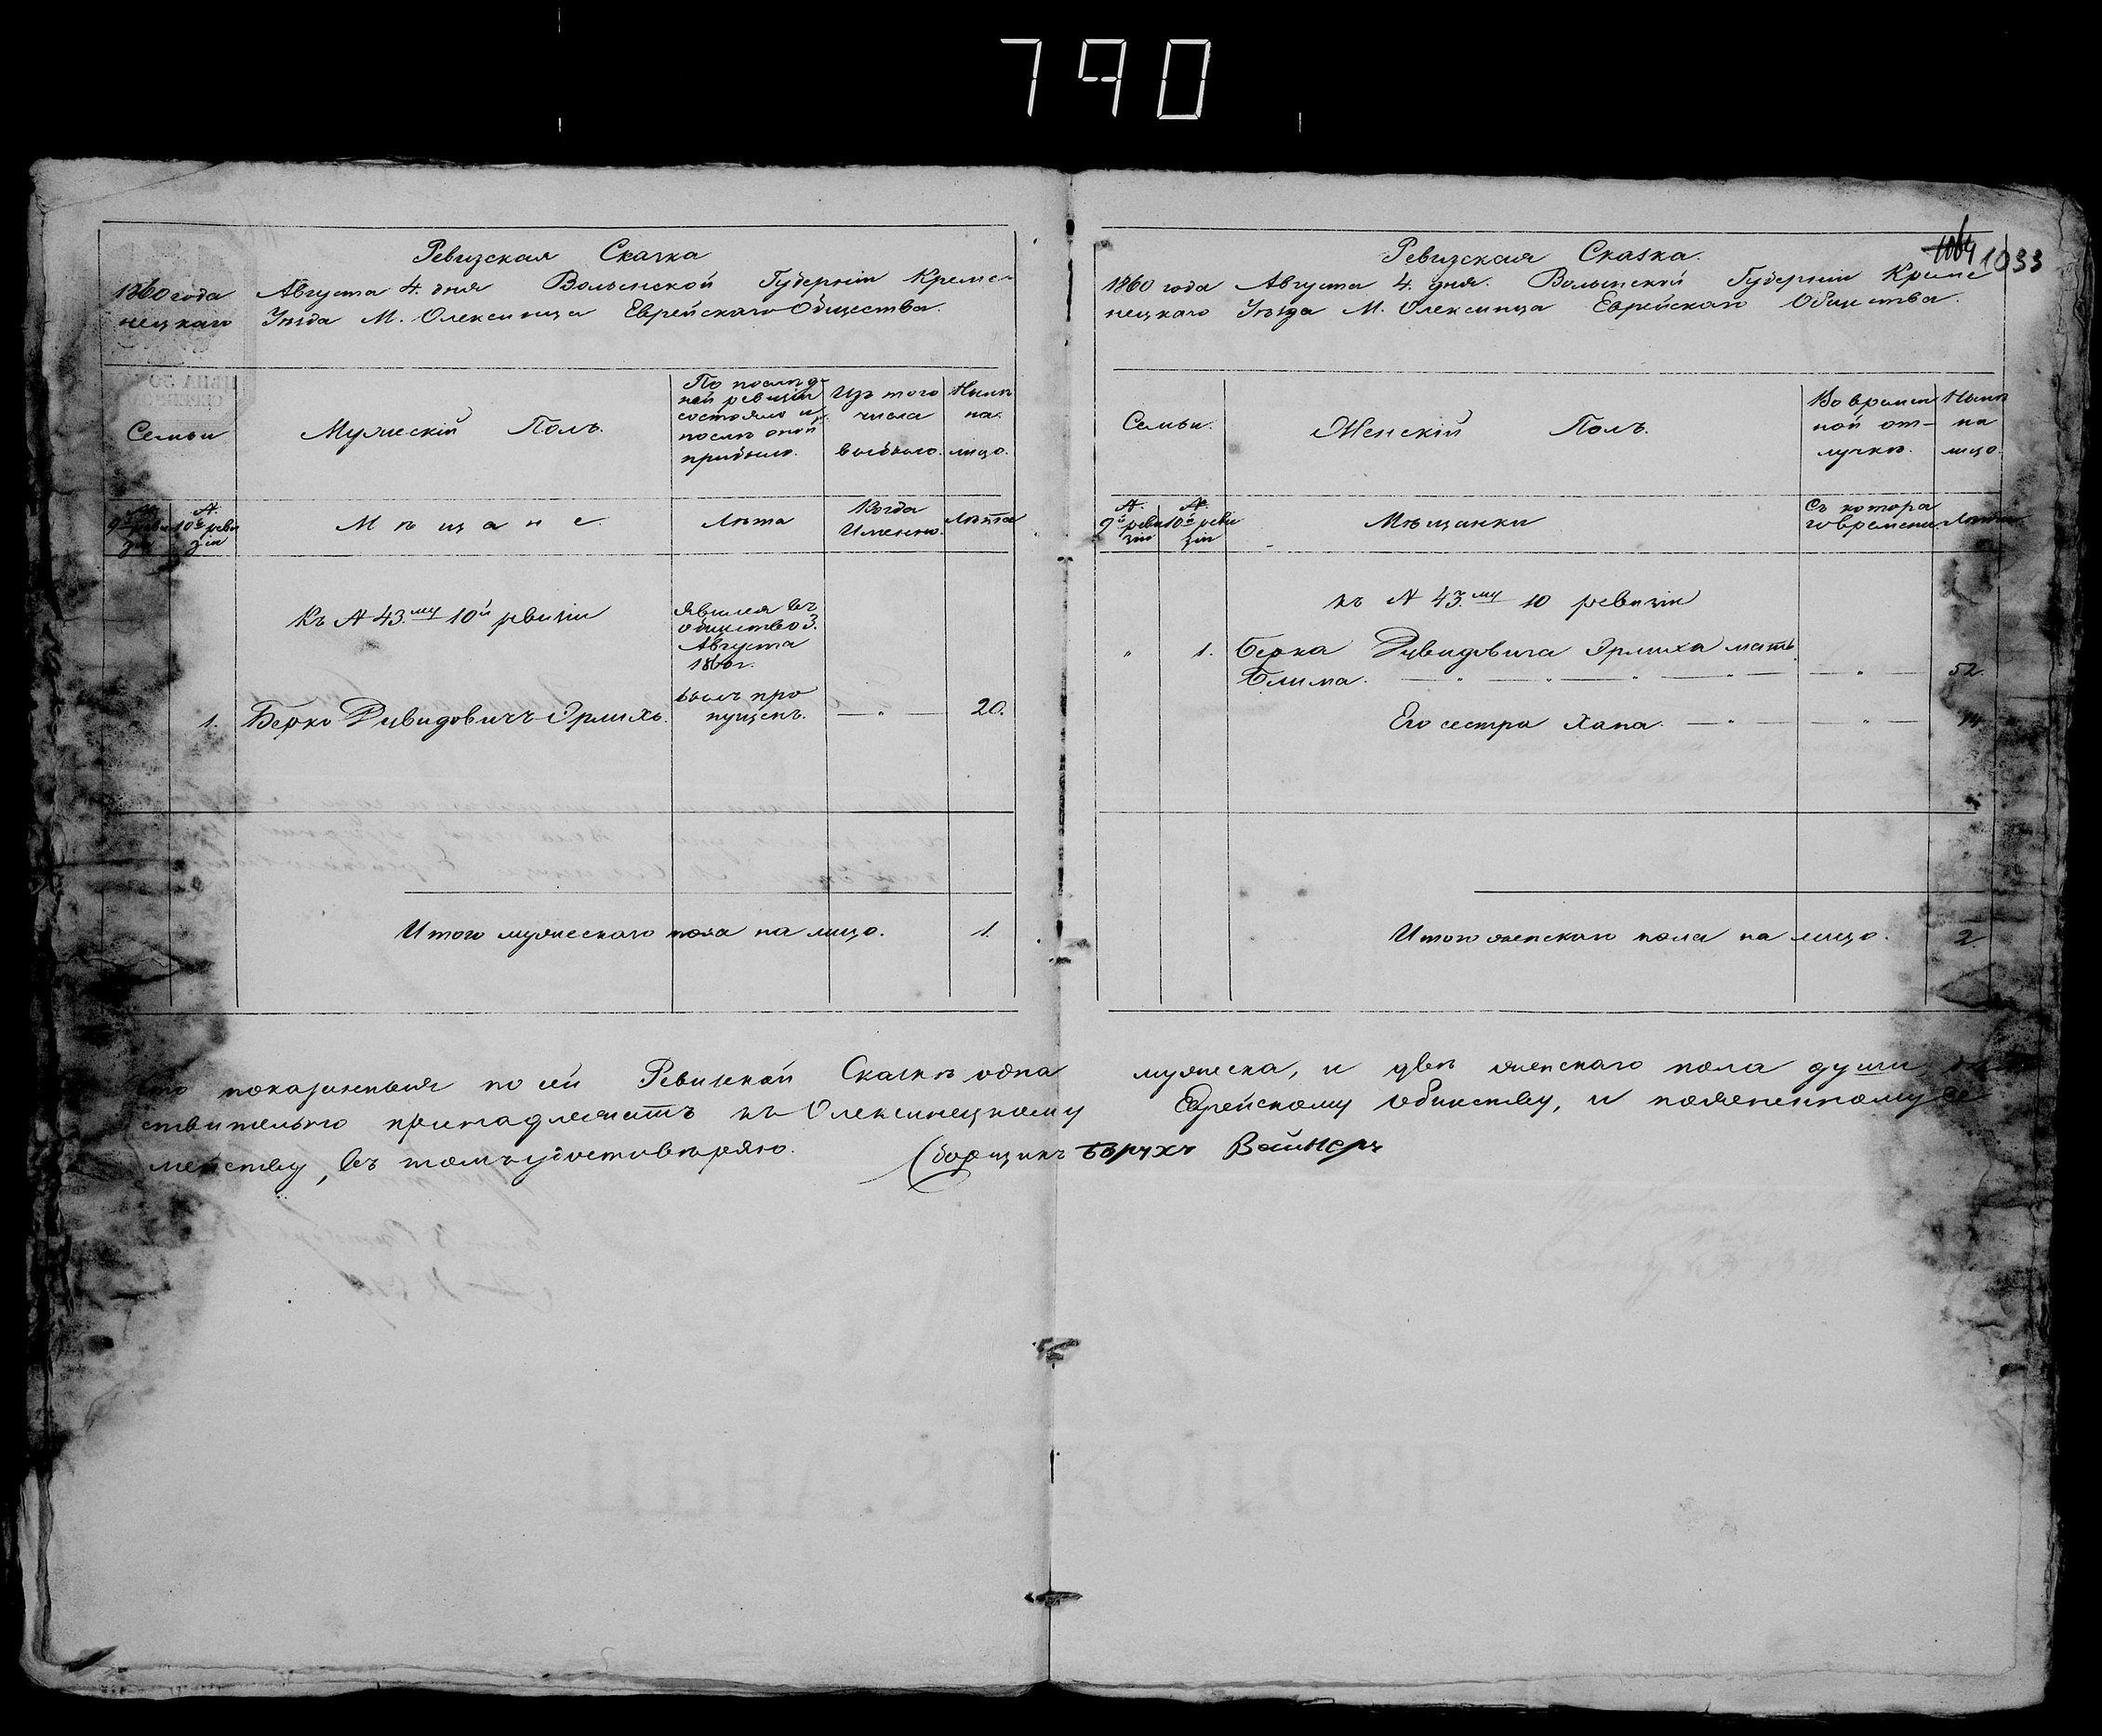 790
Ревизская Сказка
1860 года Августа 4. дня Волынской Губернiи Кремѣ-
нецкаго Уѣзда М. Олексинца Еврейскаго Общества.
Семьи
Мужескiй Полъ.
По послѣд-
ней ревизiи
состояло и
послѣ оной
прибыло.
Изъ того
числа
выбыло.
Нынѣ
на
лицо.
№ 9й реви
зiи
№ 10й реви
зiи
Мѣщане.
Лѣта
Когда
Именно.
Лѣта
Къ № 43.му 10й ревизiи
явился въ
общество 3.
Августа
1860 г.
былъ про
пущенъ.
1. Берко Дувидовичъ Эрлихъ. — " — 20.
Итого мужескаго пола на лицо. 1.
1064 1033
Ревизская Сказка.
1860 года Августа 4. дня. Волынской Губернiи Креме
нецкаго Уѣзда М. Олексинца Еврейскаго Общества.
Семьи.
Женскiй Полъ.
Во времен
ной от-
лучкѣ.
Нынѣ
на
лицо.
№ 9й реви
зiи
№ 10й реви
зiи
Мѣщанки
Съ котора
го времени
Лѣта
къ № 43.му 10 ревизiи
" 1. Берка Дувидовича Эрлиха мать
Блима. — " — " — " — " — — " — 52.
Его сестра Хана. — " — — " — 14
Итого женскаго пола на лицо. 2.
Что показанныя по сей Ревизской Сказкѣ одна мужеска, и двѣ женскаго пола души
ствительно принадлежатъ къ Олексинецкому Еврейскому обществу, и поясненному се
мейству, въ томъ удостовѣряю. Сборщикъ Борухъ Вайнеръ